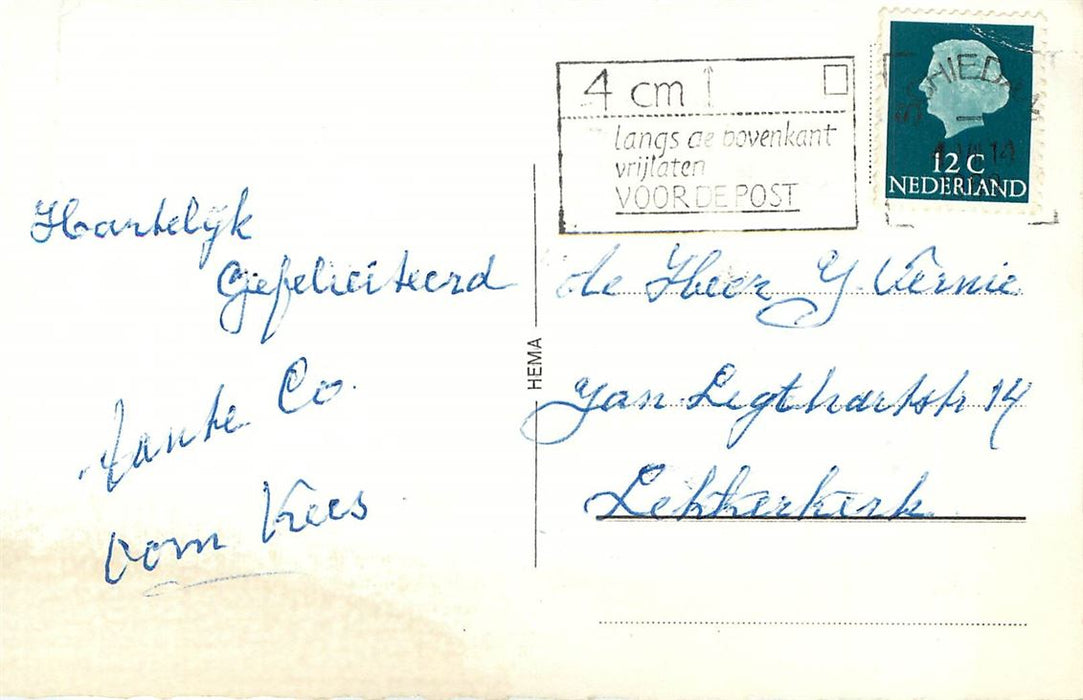 4 cm
langs de bovenkant
vrijlaten
VOOR DE POST
SCHIEDAM
12 C
NEDERLAND
Hartelijk
Gefeliciteerd
tante Co.
oom Kees
HEMA
de Heer Y. Vernie
Jan Ligthartstr 14
Lekkerkerk